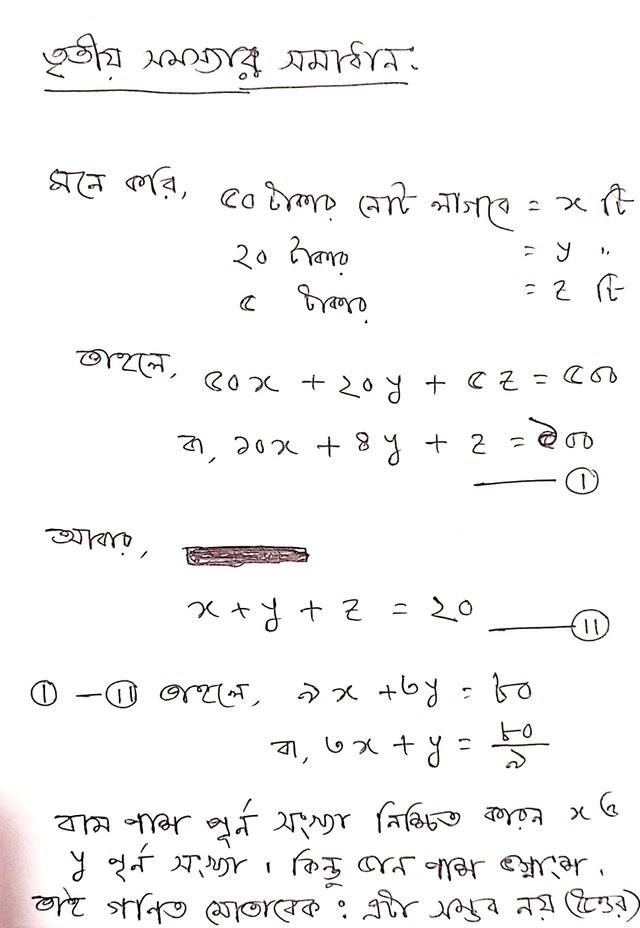 তৃতীয় সমস্যার সমাধান.
মনে করি, ৫০ টাকার নোট লাগবে = x টি
২০ টাকার = y "
৫ টাকার = z টি
তাহলে, ৫০x + ২০y + ৫z = ৫০০
বা, ১০x + ৪y + z = ১০০
—— (I)
আবার,
x + y + z = ২০ —— (II)
(I) — (II) তাহলে, ৯x + ৩y = ৮০
বা, ৩x + y = ৮০/৯
বাম পাশ পূর্ন সংখ্যা নিশ্চিত কারন x ও
y পূর্ন সংখ্যা। কিন্তু ডান পাশ ভগ্নাংশ।
তাই গনিত মোতাবেক: এটা সম্ভব নয় (উত্তর)